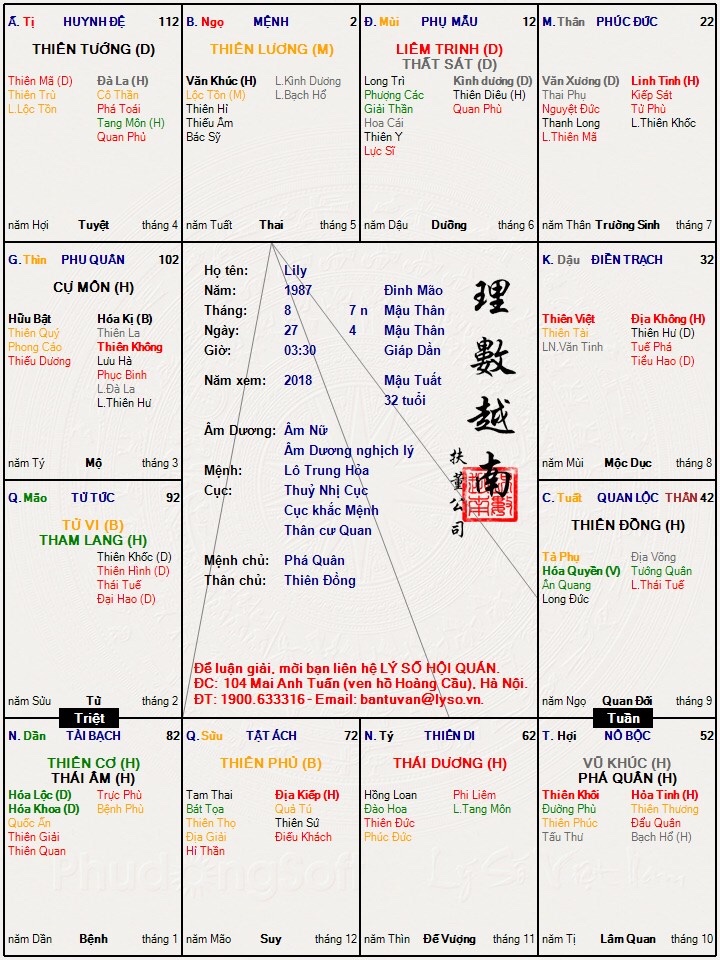 Ấ. Tị HUYNH ĐỆ 112
THIÊN TƯỚNG (D)
Thiên Mã (D) Đà La (H)
Thiên Trù Cô Thần
L.Lộc Tồn Phá Toái
Tang Môn (H)
Quan Phủ
năm Hợi Tuyệt tháng 4
B. Ngọ MỆNH 2
THIÊN LƯƠNG (M)
Văn Khúc (H) L.Kình Dương
Lộc Tồn (M) L.Bạch Hổ
Thiên Hỉ
Thiếu Âm
Bác Sỹ
năm Tuất Thai tháng 5
Đ. Mùi PHỤ MẪU 12
LIÊM TRINH (D)
THẤT SÁT (D)
Long Trì Kình dương (D)
Phượng Các Thiên Diêu (H)
Giải Thần Quan Phù
Hoa Cái
Thiên Y
Lực Sĩ
năm Dậu Dưỡng tháng 6
M. Thân PHÚC ĐỨC 22
Văn Xương (D) Linh Tinh (H)
Thai Phụ Kiếp Sát
Nguyệt Đức Tử Phù
Thanh Long L.Thiên Khốc
L.Thiên Mã
năm Thân Trường Sinh tháng 7
G. Thìn PHU QUÂN 102
CỰ MÔN (H)
Hữu Bật Hóa Kị (B)
Thiên Quý Thiên La
Phong Cáo Thiên Không
Thiếu Dương Lưu Hà
Phục Binh
L.Đà La
L.Thiên Hư
năm Tý Mộ tháng 3
Họ tên: Lily
Năm: 1987 Đinh Mão
Tháng: 8 7 n Mậu Thân
Ngày: 27 4 Mậu Thân
Giờ: 03:30 Giáp Dần
Năm xem: 2018 Mậu Tuất
32 tuổi
Âm Dương: Âm Nữ
Âm Dương nghịch lý
Mệnh: Lô Trung Hỏa
Cục: Thuỷ Nhị Cục
Cục khắc Mệnh
Thân cư Quan
Mệnh chủ: Phá Quân
Thân chủ: Thiên Đồng
理數越南
扶董公司
Để luận giải, mời bạn liên hệ LÝ SỐ HỘI QUÁN.
ĐC: 104 Mai Anh Tuấn (ven hồ Hoàng Cầu), Hà Nội.
ĐT: 1900.633316 - Email: bantuvan@lyso.vn.
K. Dậu ĐIỀN TRẠCH 32
Thiên Việt Địa Không (H)
Thiên Tài Thiên Hư (D)
LN.Văn Tinh Tuế Phá
Tiểu Hao (D)
năm Mùi Mộc Dục tháng 8
Q. Mão TỬ TỨC 92
TỬ VI (B)
THAM LANG (H)
Thiên Khốc (D)
Thiên Hình (D)
Thái Tuế
Đại Hao (D)
năm Sửu Tử tháng 2
C. Tuất QUAN LỘC THÂN 42
THIÊN ĐỒNG (H)
Tả Phụ Địa Võng
Hóa Quyền (V) Tướng Quân
Ân Quang L.Thái Tuế
Long Đức
năm Ngọ Quan Đới tháng 9
Triệt
Tuần
N. Dần TÀI BẠCH 82
THIÊN CƠ (H)
THÁI ÂM (H)
Hóa Lộc (D) Trực Phù
Hóa Khoa (D) Bệnh Phù
Quốc Ấn
Thiên Giải
Thiên Quan
năm Dần Bệnh tháng 1
Q. Sửu TẬT ÁCH 72
THIÊN PHỦ (B)
Tam Thai Địa Kiếp (H)
Bát Tọa Quả Tú
Thiên Thọ Thiên Sứ
Địa Giải Điếu Khách
Hỉ Thần
năm Mão Suy tháng 12
N. Tý THIÊN DI 62
THÁI DƯƠNG (H)
Hồng Loan Phi Liêm
Đào Hoa L.Tang Môn
Thiên Đức
Phúc Đức
năm Thìn Đế Vượng tháng 11
T. Hợi NÔ BỘC 52
VŨ KHÚC (H)
PHÁ QUÂN (H)
Thiên Khôi Hỏa Tinh (H)
Đường Phù Thiên Thương
Thiên Phúc Đẩu Quân
Tấu Thư Bạch Hổ (H)
năm Tị Lâm Quan tháng 10